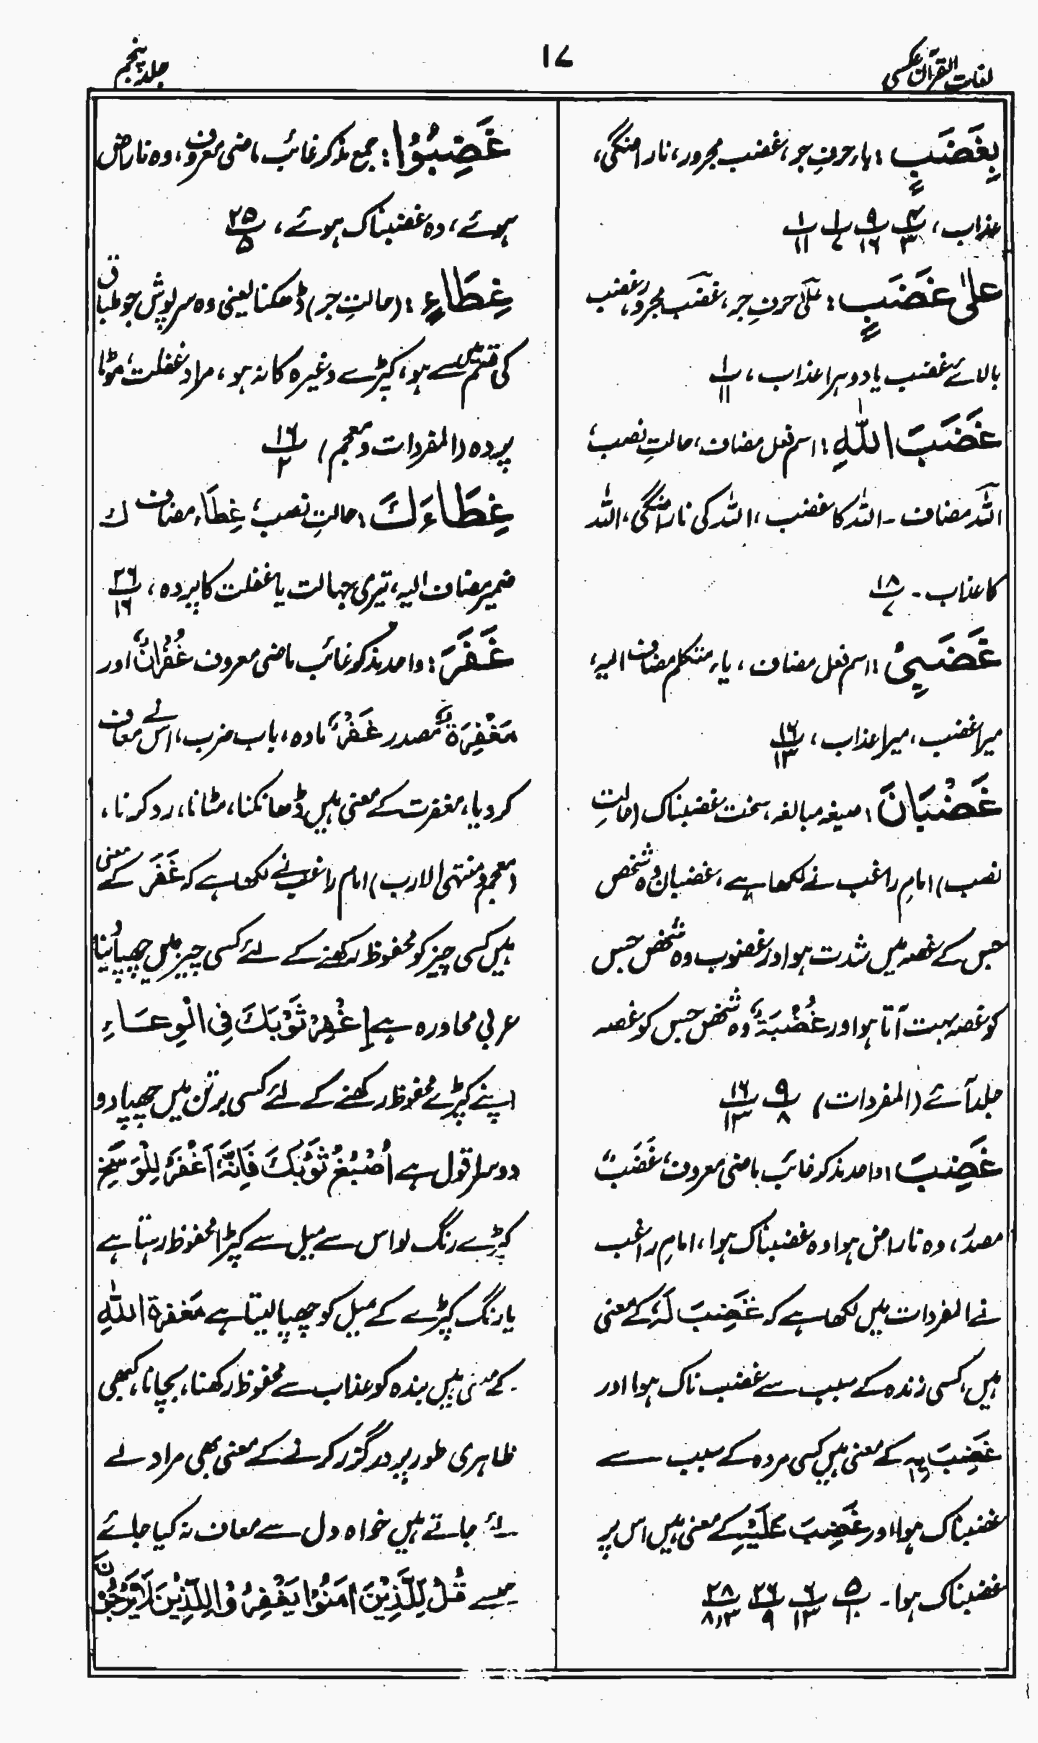 لغات القرآن عکسی
١٧
جلد پنجم
بِغَضَبٍ : باء حرفِ جر، غضب مجرور، ناراضگی،
عذاب، پ۴/۳ پ۹/۱۶ پ۱/۷ پ۱/۱۱
علیٰ غَضَبٍ : عَلیٰ حرفِ جر، غضب مجرور، غضب
بالائے غضب یا دوہرا عذاب، پ۱/۱۱
غَضَبَ اللّٰهِ : اسم فعل مضاف، حالتِ نصب،
اللّٰہ مضاف۔ اللّٰہ کا غضب، اللّٰہ کی ناراضگی، اللّٰہ
کا عذاب۔ پ۱۸/۷
غَضَبِیْ : اسم فعل مضاف، یاء متکلم مضاف الیہ،
میرا غضب، میرا عذاب، پ۱۶/۱۳
غَضْبَانَ : صیغہ مبالغہ، سخت غضبناک (حالتِ
نصب) امام راغب نے لکھا ہے، غضبان وہ شخص
جس کے غصہ میں شدت ہو اور غضوب وہ شخص جس
کو غصہ بہت آتا ہو اور غُضُبَۃٌ وہ شخص جس کو غصہ
جلد آئے (المفردات) پ۹/۸ پ۱۶/۱۳
غَضِبَ : واحد مذکر غائب ماضی معروف، غَضَبٌ
مصدر، وہ ناراض ہوا وہ غضبناک ہوا، امام راغب
نے المفردات میں لکھا ہے کہ غَضِبَ لَہٗ کے معنی
ہیں کسی زندہ کے سبب سے غضب ناک ہوا اور
غَضِبَ بِہٖ کے معنی ہیں کسی مردہ کے سبب سے
غضبناک ہوا اور غَضِبَ عَلَیْہِ کے معنی ہیں اس پر
غضبناک ہوا۔ پ۵/۱۰ پ۶/۱۳ پ۲۶/۹ پ۲۸/۸،۳
غَضِبُوْا : جمع مذکر غائب ماضی معروف، وہ ناراض
ہوئے، وہ غضبناک ہوئے، پ۲۵/۵
غِطَاءٍ : (حالتِ جر) ڈھکنا یعنی وہ سرپوش جو طباق
کی قسم میں سے ہو، کپڑے وغیرہ کا نہ ہو، مراد غفلت، موٹا
پردہ (المفردات و معجم) پ۱۶/۲
غِطَاءَكَ : حالتِ نصب، غِطَاء مضاف ك
ضمیر مضاف الیہ، تیری جہالت یا غفلت کا پردہ، پ۲۶/۱۶
غَفَرَ : واحد مذکر غائب ماضی معروف غُفْرَانٌ اور
مَغْفِرَۃٌ مصدر غَفْرٌ مادہ، باب ضرب، اس نے معاف
کر دیا، مغفرت کے معنی ہیں ڈھانکنا، مٹانا، رد کرنا،
(معجم و منتہی الارب) امام راغب نے لکھا ہے کہ غَفَرَ کے معنی
ہیں کسی چیز کو محفوظ رکھنے کے لئے کسی چیز میں چھپا دینا
عربی محاورہ ہے اِغْفِرْ ثَوْبَكَ فِی الْوِعَاءِ
اپنے کپڑے محفوظ رکھنے کے لئے کسی برتن میں چھپا دو
دوسرا قول ہے اُصْبُغْ ثَوْبَكَ فَاِنَّہٗ اَغْفَرُ لِلْوَسَخِ
کپڑے رنگ لو اس سے میل سے کپڑا محفوظ رہتا ہے
یا رنگ کپڑے کے میل کو چھپا لیتا ہے مَغفرۃ اللّٰہِ
کے معنی ہیں بندہ کو عذاب سے محفوظ رکھنا، بچانا، کبھی
ظاہری طور پر درگزر کرنے کے معنی بھی مراد لے
لئے جاتے ہیں خواہ دل سے معاف نہ کیا جائے
جیسے قُلْ لِّلَّذِیْنَ اٰمَنُوْا یَغْفِرُوْا لِلَّذِیْنَ لَا یَرْجُوْنَ